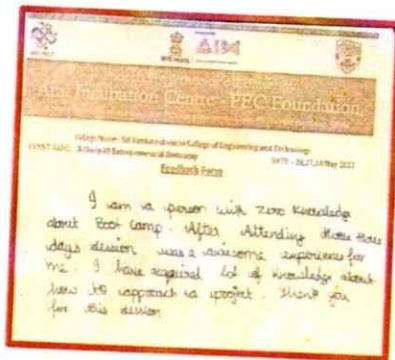 Atal Incubation Centre - PEC Foundation
College Name - Sri Venkateshwara College of Engineering and Technology
Entrepreneurial Bootcamp
DATE - 16,17,18 May 2023
Feedback Form
I am a person with zero knowledge
about Boot Camp. After Attending these three
days session was a awesome experience for
me. I have acquired lot of knowledge about
how to approach a project. Thank you
for this session